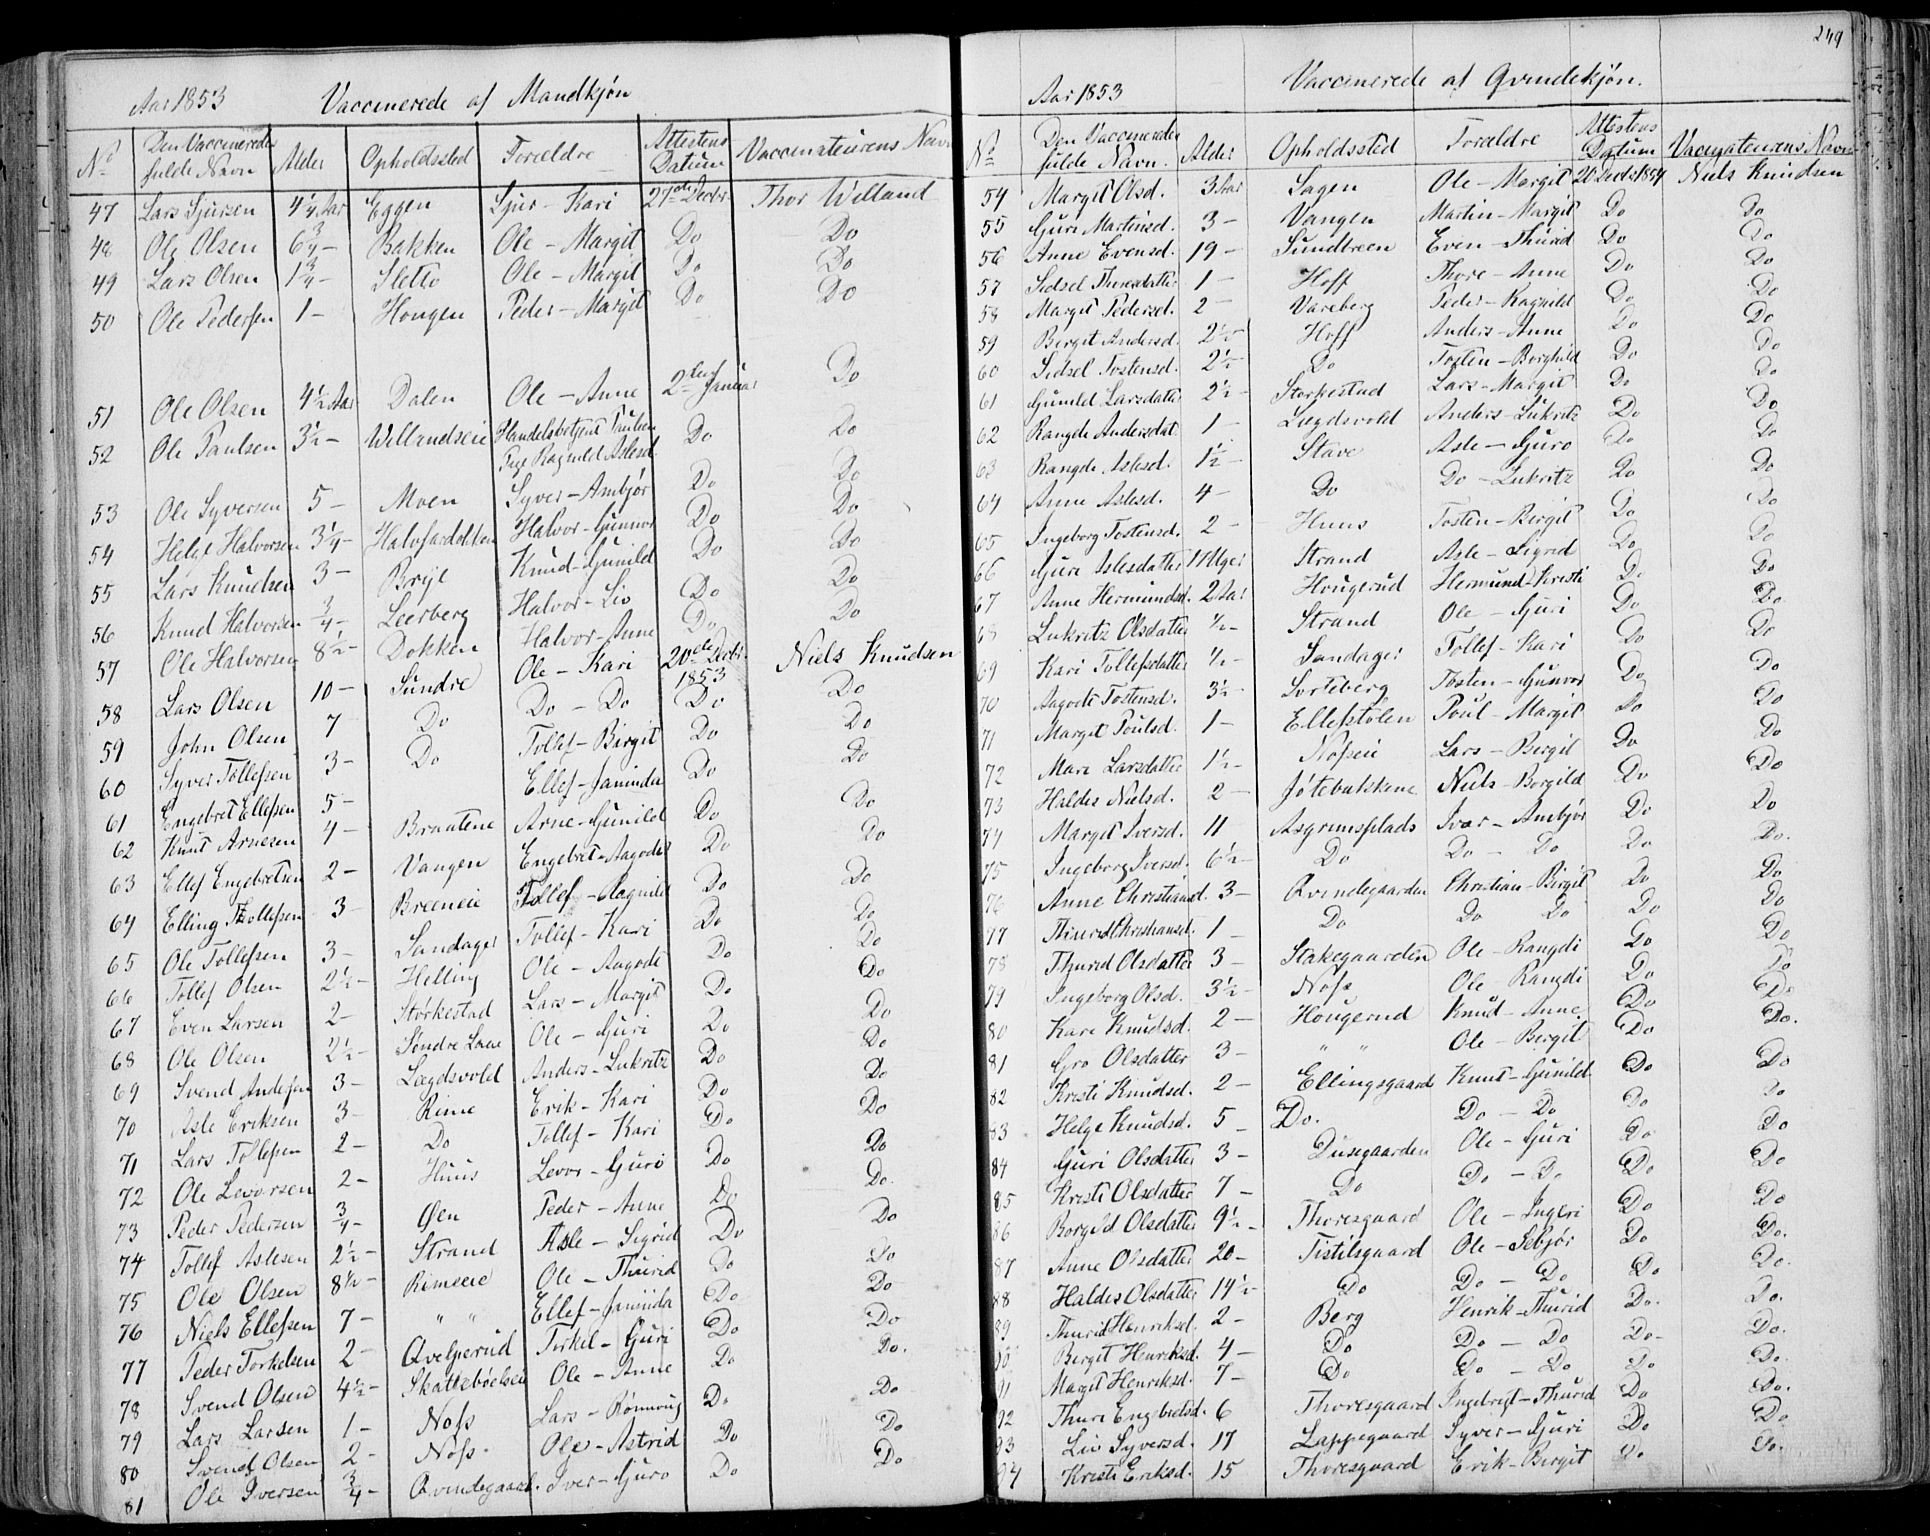 Aar 1853 Vaccinerede af Mandkjøn
No Den Vaccineredes fulde Navn Alder Opholdssted Forældre Attestens Datum Vaccinateurens Navn
47 Lars Sjursen 4 1/4 Aar Eggen Sjur - Kari 27de Decbr. Thor Villand
48 Ole Olsen 6 3/4 - Bakken Ole - Margit Do Do
49 Lars Olsen 1 3/4 - Sletto Ole - Margit Do Do
50 Ole Pedersen 1 - Hougen Peder - Margit Do Do
51 Ole Olsen 4 1/2 Aar Dalen Ole - Anne 2den Januar Do
52 Ole Paulsen 3 1/2 - Villandseie Handelsbetjent Paulsen Pige Ragnild Aslesd. Do Do
53 Ole Syversen 5 - Moen Syver - Ambjør Do Do
54 Helge Halvorsen 3 1/4 - Halvor - Gunnor Do Do
55 Lars Knudsen 3 - Brye Knud - Gunild Do Do
56 Knud Halvorsen 3/4 - Leerberg Halvor - Liv Do Do
57 Ole Halvorsen 8 1/2 - Dokken Halvor - Anne Do Do
58 Lars Olsen 10 - Sundre Ole - Kari 20de Decbr. 1853 Niels Knudsen
59 John Olsen 7 Do Do - Do Do Do
60 Syver Tollefsen 3 - Do Tollef - Birgit Do Do
61 Engebret Ellefsen 5 - Ellef - Jaminda Do Do
62 Knut Arnesen 4 - Braatene Arne - Gunild Do Do
63 Ellef Engebretsen 2 - Vangen Engebret - Aagodt Do Do
64 Elling Tollefsen 3 - Breeneie Tollef - Ragnild Do Do
65 Ole Tollefsen 3 - Sandager Tollef - Kari Do Do
66 Tollef Olsen 2 1/2 - Helling Ole - Aagodt Do Do
67 Even Larsen 2 - Storkestad Lars - Margit Do Do
68 Ole Olsen 2 1/2 - Søndre Ole - Guri Do Do
69 Svend Andersen 3 - Lægdsvold Anders - Lukritz Do Do
70 Asle Eriksen 3 - Rime Erik - Kari Do Do
71 Lars Tollefsen 2 - Do Tollef - Kari Do Do
72 Ole Levorsen 2 - Huus Levor - Guro Do Do
73 Peder Pedersen 3/4 - Øen Peder - Anne Do Do
74 Tollef Aslesen 2 1/2 - Strand Asle - Sigrid Do Do
75 Ole Olsen 8 1/2 - Rimeeie Ole - Thurid Do Do
76 Niels Ellefsen 7 - " " Ellef - Jamida Do Do
77 Peder Torkelsen 2 - Qvelperud Tirkel - Guri Do Do.
78 Svend Olsen 4 1/2 - Skattebøelseie Ole - Anne Do Do
79 Lars Larsen 1 - Nofs Lars - Rønnoug Do Do
80 Svend Olsen 2 - Nofs Ole - Astrid Do Do
81 Ole Iversen 3/4 - Qvindegaard. Iver - Guro Do Do
249
Aar 1853 Vaccinerede af Qvindekjøn.
No Den Vaccineredes fulde Navn. Alder Opholdssted Forældre Attestens Datum Vaccinateurens Navn
54 Margit Olsd. 3 Aar Sagen Ole - Margit 20 Decbr 1854 Niels Knudsen
55 Guri Martinsd. 3 - Vangen Martin - Margit Do Do
56 Anne Evensd. 19 - Sundbreen Even - Thurid Do Do
57 Sidsel Thoresdatter 1 - Hoff Thore - Anne Do Do
58 Margit Pedersd. 2 - Vareberg Peder - Ragnild Do Do
59 Bergit Andersd. 2 1/2 - Hoff Anders - Anne Do Do
60 Sidsel Tostensd. 2 1/2 - Do Tosten - Borghild Do Do
61 Gunild Larsdatter 2 1/2 - Storkestad Lars - Margit Do Do
62 Rangdi Andersdat. 1 - Lægdsvold Anders - Lukritz Do Do
63 Rangdi Aslesd. 1 1/2 - Stave Asle - Guro Do Do
64 Anne Aslesd. 4 - Do Do - Lukritz Do Do
65 Ingeborg Tostensd. 2 - Huus Tosten - Birgit Do Do
66 Guri Aslesdatter 11 Uger Strand Asle - Sigrid Do Do
67 Anne Hermundsd. 2 Aar Hougerud Hermund - Kristi Do Do
68 Lukritz Olsdatter 1/2 - Strand Ole - Guri Do Do
69 Kari Tollefsdatter 1/2 - Sandager Tollef - Kari Do Do
70 Aagodt Tostensd. 3 1/2 - Sorteberg Tosten - Gunvor Do Do
71 Margit Poulsd. 1 - Ellefstolen Poul - Margit Do Do
72 Mari Larsdatter 1 1/2 - Nofseie Lars - Bergit Do Do
73 Haldis Nielsd. 2 - Jøtebakkene Niels - Borgild Do Do
74 Margit Iversd. 11 Asgrimsplads Ivar - Ambjør Do Do
75 Ingeborg Iversd. 6 1/2 - Do Do - Do Do Do.
76 Anne Christiansd. 3 - Qvindegaarden Christian - Birgit Do Do
77 Thurid Christiansd. 1 - Do Do Do Do Do
78 Thurid Olsdatter 3 - Stakegaarden Ole - Rangdi Do Do
79 Ingeborg Olsd. 3 1/2 - Nofs Ole - Rangdi Do Do
80 Kari Knudsd. 2 - Hougerud Knud - Anne Do Do
81 Gro Olsdatter 3 - " " Ole - Bergit Do Do.
82 Kristi Knudsd. 2 - Ellingsgaard Knut - Gunild Do Do
83 Helge Knudsd. 5 - Do. Do - Do Do Do
84 Guri Olsdatter 3 - Dusegaarden Ole - Guri Do Do
85 Kristi Olsdatter 7 - Do Do - Do Do Do
86 Borgild Olsdatter 9 1/2 - Thoresgaard Ole - Ingeri Do Do
87 Anne Olsdatter 20 - Tistilsgaard Ole - Sebjør Do Do.
88 Haldis Olsdatter 14 1/2 - Do Do - Do Do Do.
89 Thurid Henriksd. 2 - Berg Henrik - Thurid Do. Do.
90 Bergit Henriksd. 4 - Do Do - Do Do - Do.
91 Margit Henriksd. 7 - Do Do - Do Do Do.
92 Thuri Engebretsd. 6 Thoresgaard Ingebregt - Thurid Do Do.
93 Liv Syversd. 17 Lappegaard Syver - Guri Do Do
94 Kristi Eriksd. 15 Thoresgaard Erik - Birgit Do Do.